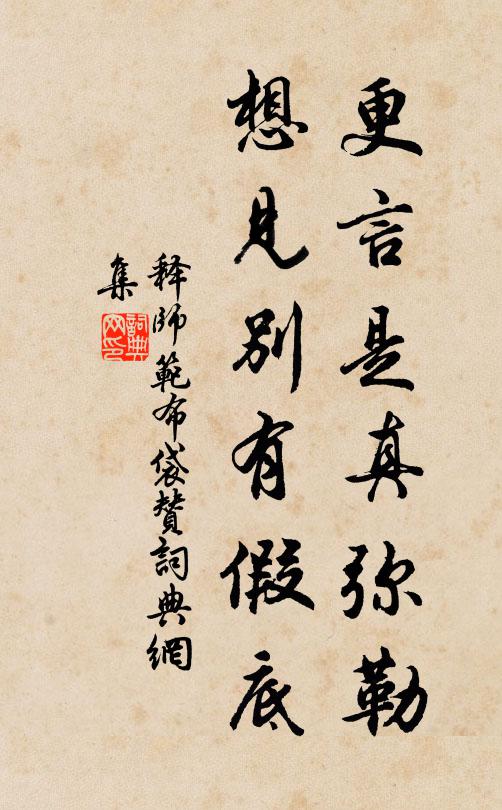 更言是真弥勒
想见别有假底
释师範布袋赞詞典網
集
詞典
网印